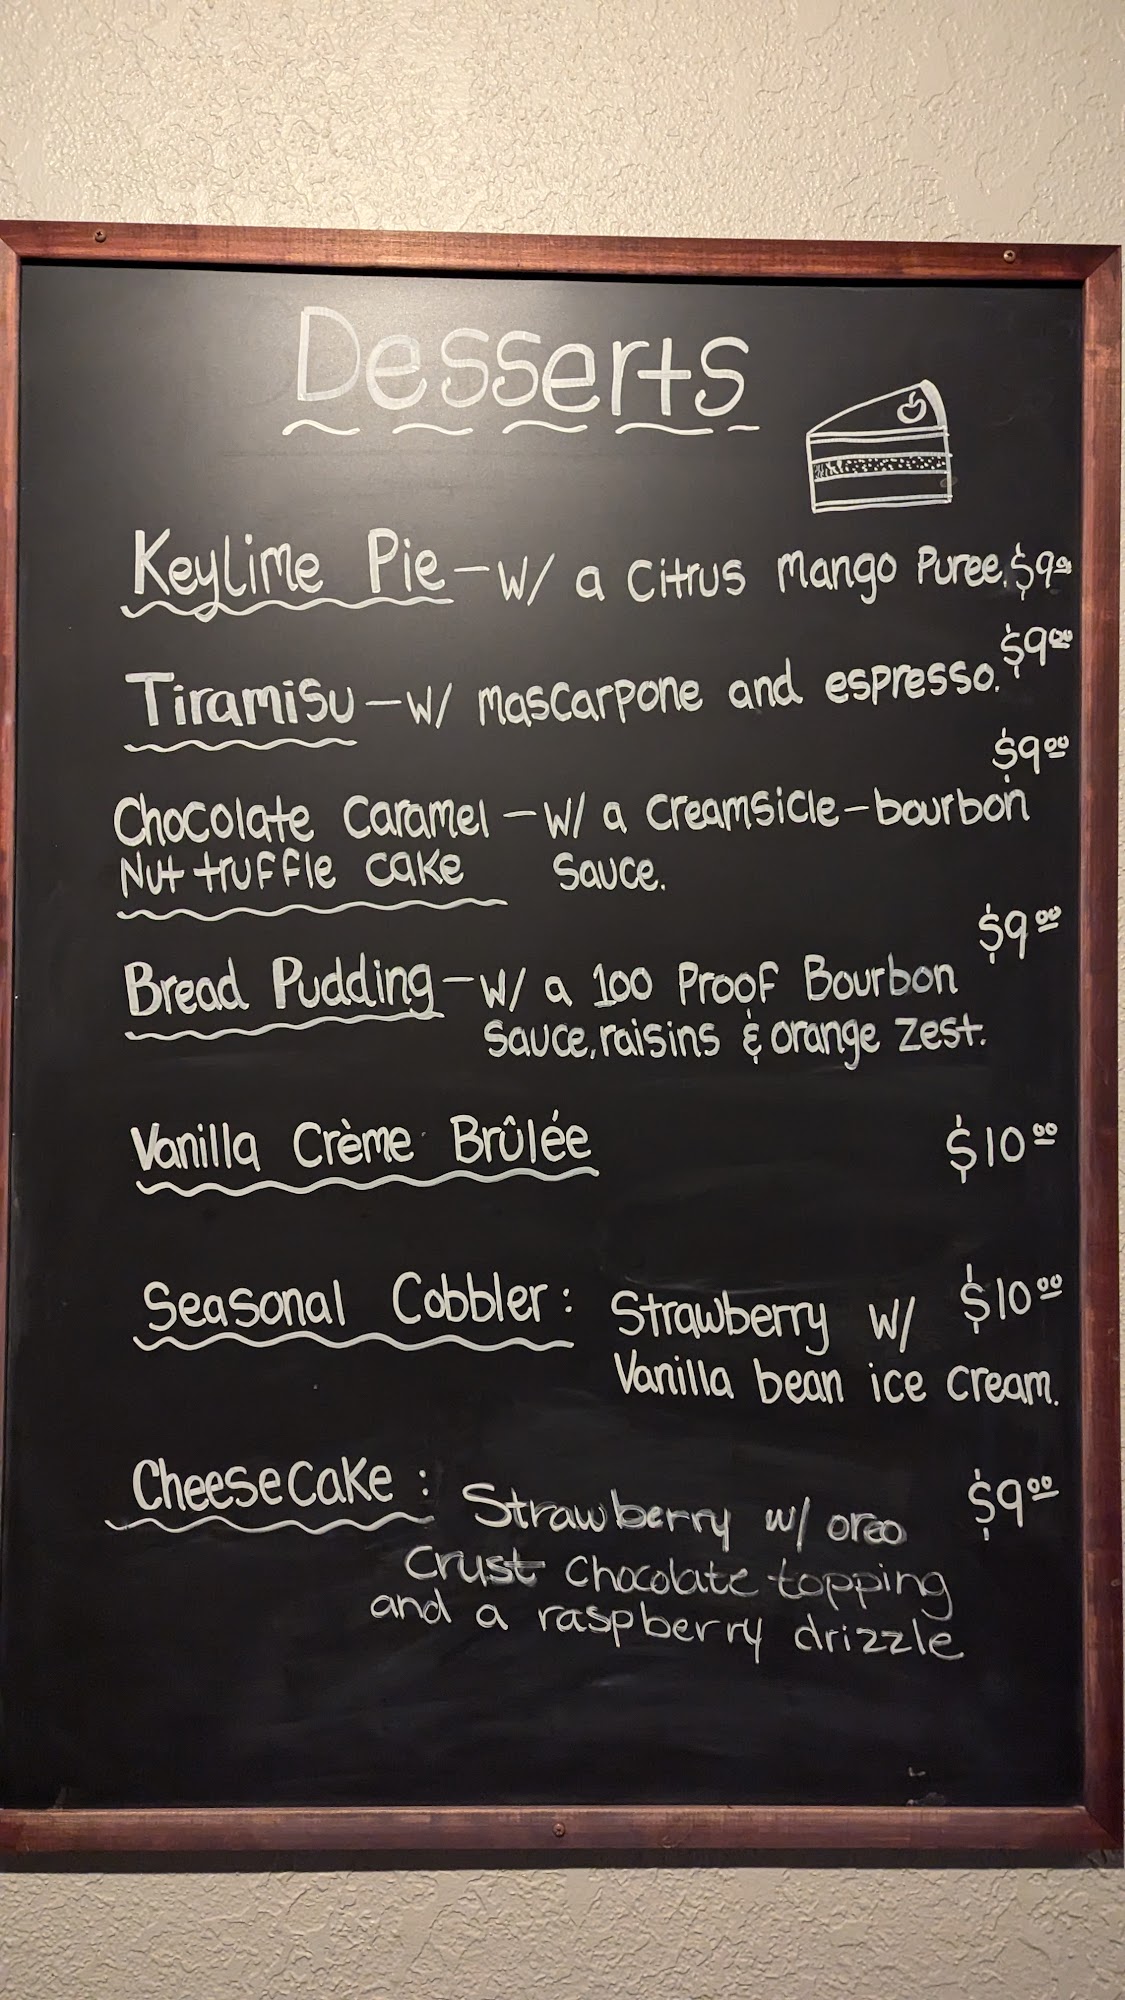 Desserts
Keylime Pie - w/ a Citrus Mango Puree. $9.00
$9.00
Tiramisu - w/ mascarpone and espresso.
$9.00
Chocolate Caramel - w/ a creamsicle-bourbon
Nut truffle cake sauce.
$9.00
Bread Pudding - w/ a 100 Proof Bourbon
Sauce, raisins & orange zest.
Vanilla Crème Brûlée $10.00
Seasonal Cobbler: Strawberry w/ $10.00
Vanilla bean ice cream.
Cheesecake: $9.00
Strawberry w/ oreo
Crust Chocolate topping
and a raspberry drizzle